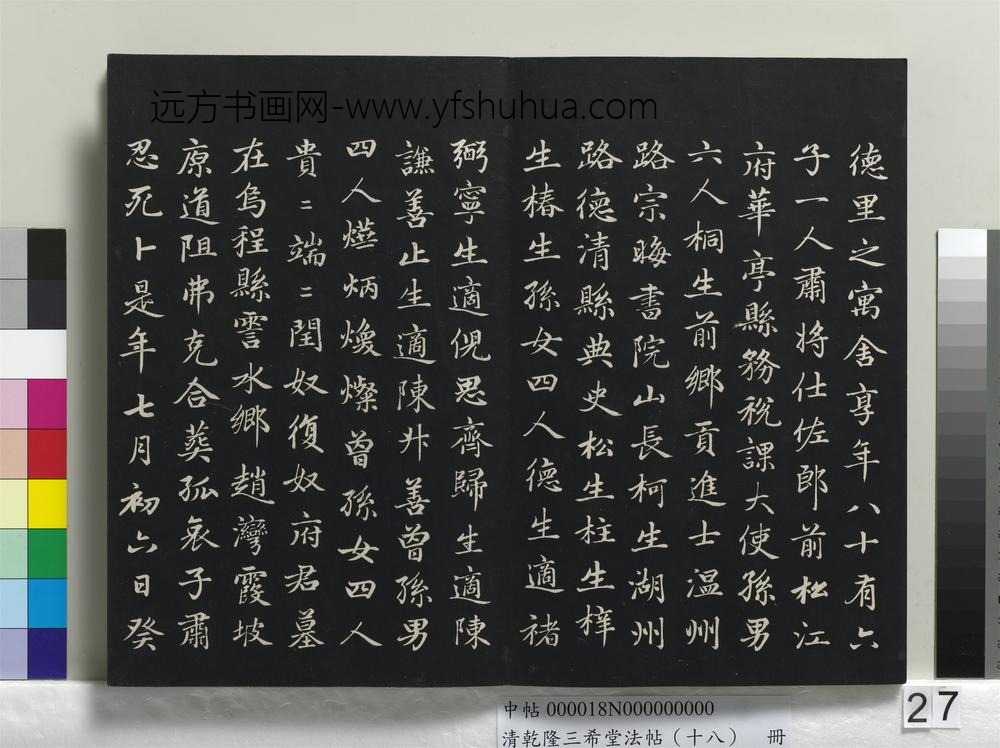 远方书画网-www.yfshuhua.com
德里之寓舍享年八十有六
子一人肅將仕佐郎前松江
府華亭縣務税課大使孫男
六人桐生前鄉貢進士温州
路宗晦書院山長柯生湖州
路德清縣典史松生柱生梓
生椿生孫女四人德生適褚
弼寧生適倪思齊歸生適陳
謙善止生適陳舛善曾孫男
四人爃炳煥燦曾孫女四人
貴=端=閏奴復奴府君墓
在烏程縣霅水鄉趙灣霞坡
原道阻弗克合葬孤哀子肅
忍死卜是年七月初六日癸
27
中帖 000018N000000000
清乾隆三希堂法帖（十八） 冊